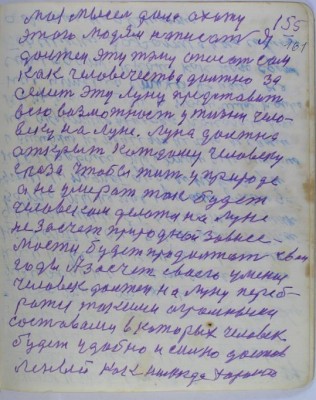 моя мысль дала охоту 155
этого людям написать Я
должен эту тему описать сам
как человечество должно за
селить эту Луну представить
всю возможность у жизни чело-
веку на Луне. Луна должна
открыть каждому человеку
глаза чтобы жить у природе
а не умерать так будет
человеком делать на Луне
не засчет природной зависе-
мости будет продолжать свои
годы А засчет своего умения
человек должен на Луну переб-
ратся такими огромными
составами в которых человек
будет удобно и сильно достав
леной как никогда хорошо